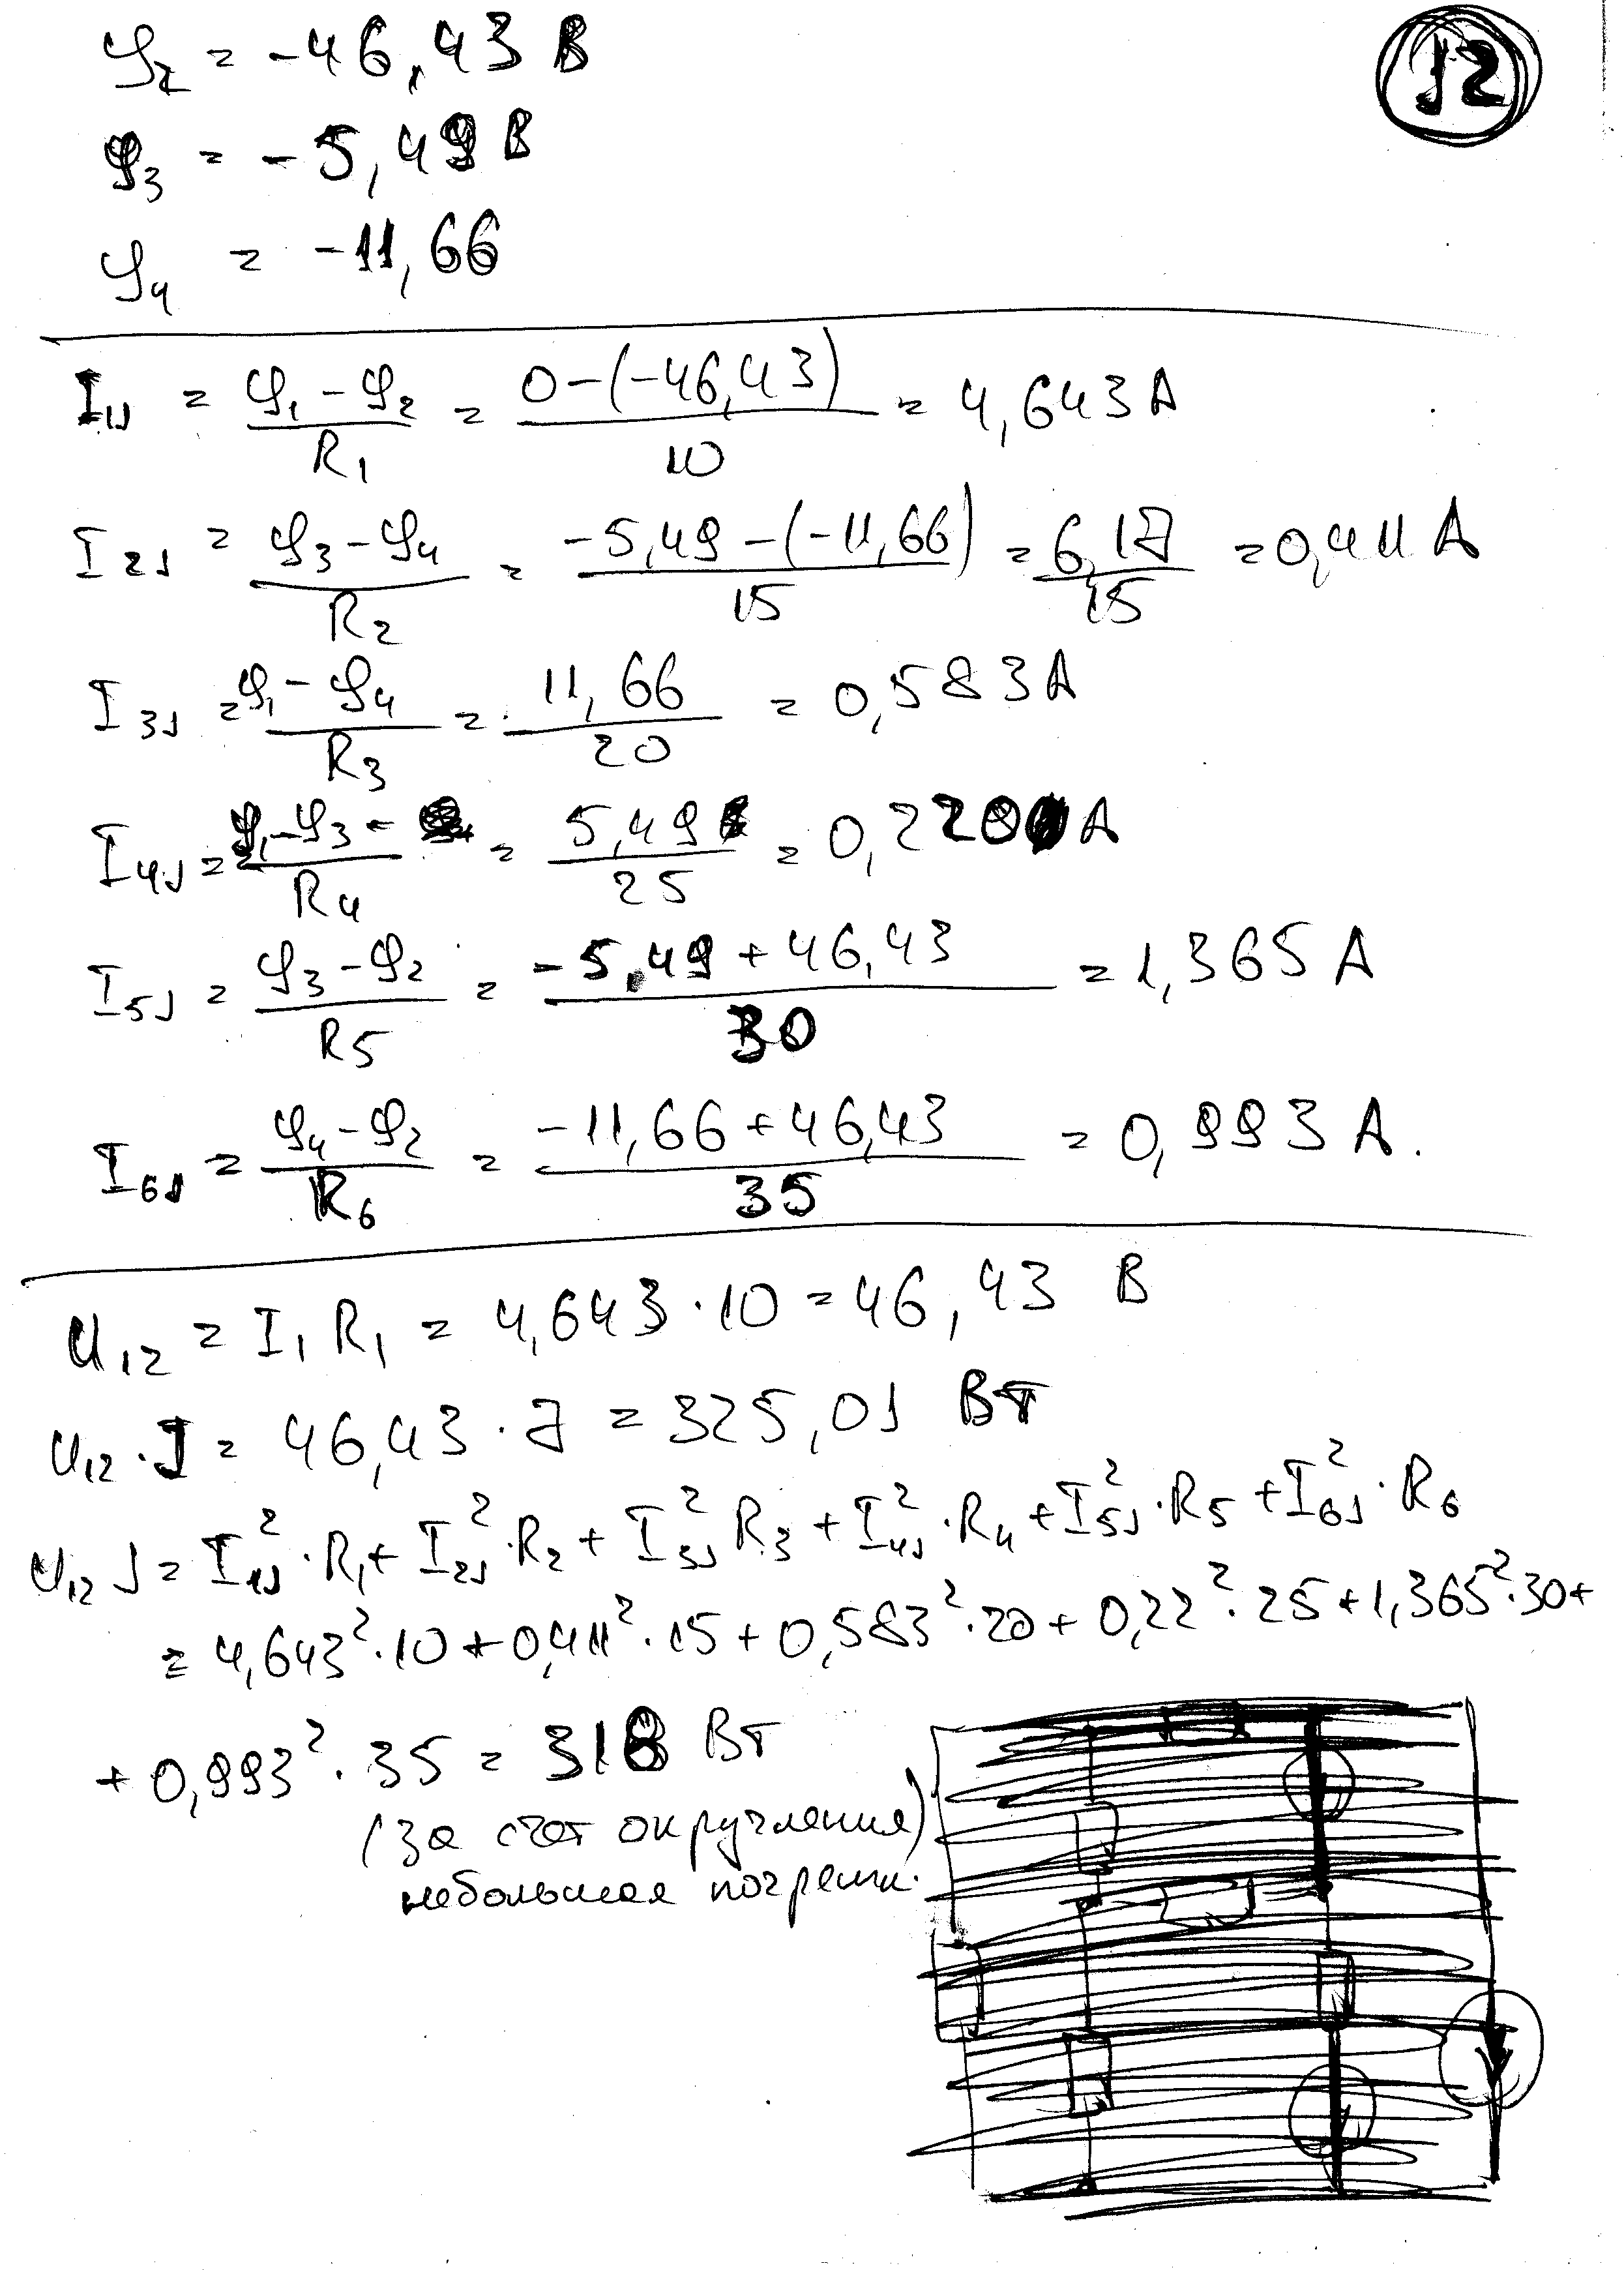 φ₂ = -46,43 В
12
φ₃ = -5,49 В
φ₄ = -11,66
I₁J = (φ₁ - φ₂)/R₁ = (0-(-46,43))/10 = 4,643 А
I₂J = (φ₃ - φ₄)/R₂ = (-5,49-(-11,66))/15 = 6,17/15 = 0,411 А
I₃J = (φ₁ - φ₄)/R₃ = 11,66/20 = 0,583 А
I₄J = (φ₁ - φ₃)/R₄ = 5,49/25 = 0,220 А
I₅J = (φ₃ - φ₂)/R₅ = (-5,49 + 46,43)/30 = 1,365 А
I₆J = (φ₄ - φ₂)/R₆ = (-11,66 + 46,43)/35 = 0,993 А.
U₁₂ = I₁R₁ = 4,643 · 10 = 46,43 В
U₁₂ · J = 46,43 · 7 = 325,01 Вт
U₁₂ J = I₁J² · R₁ + I₂J² · R₂ + I₃J² R₃ + I₄J² · R₄ + I₅J² · R₅ + I₆J² · R₆
= 4,643² · 10 + 0,411² · 15 + 0,583² · 20 + 0,22² · 25 + 1,365² · 30 +
+ 0,993² · 35 = 318 Вт
(За счет округления)
небольшая погрешн.